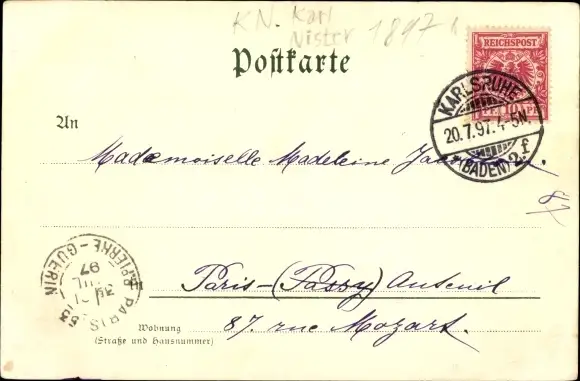 KN. Karl
Nister 1897
REICHSPOST
Postkarte
KARLSRUHE
20.7.97.4-5N.
*(BADEN)2.f
An
Mademoiselle Madeleine
87
PARIS 53
R. PIERRE-GUERIN
21
97
Paris-(Passy) Auteuil
87. rue Mozart.
Wohnung
(Straße und Hausnummer)